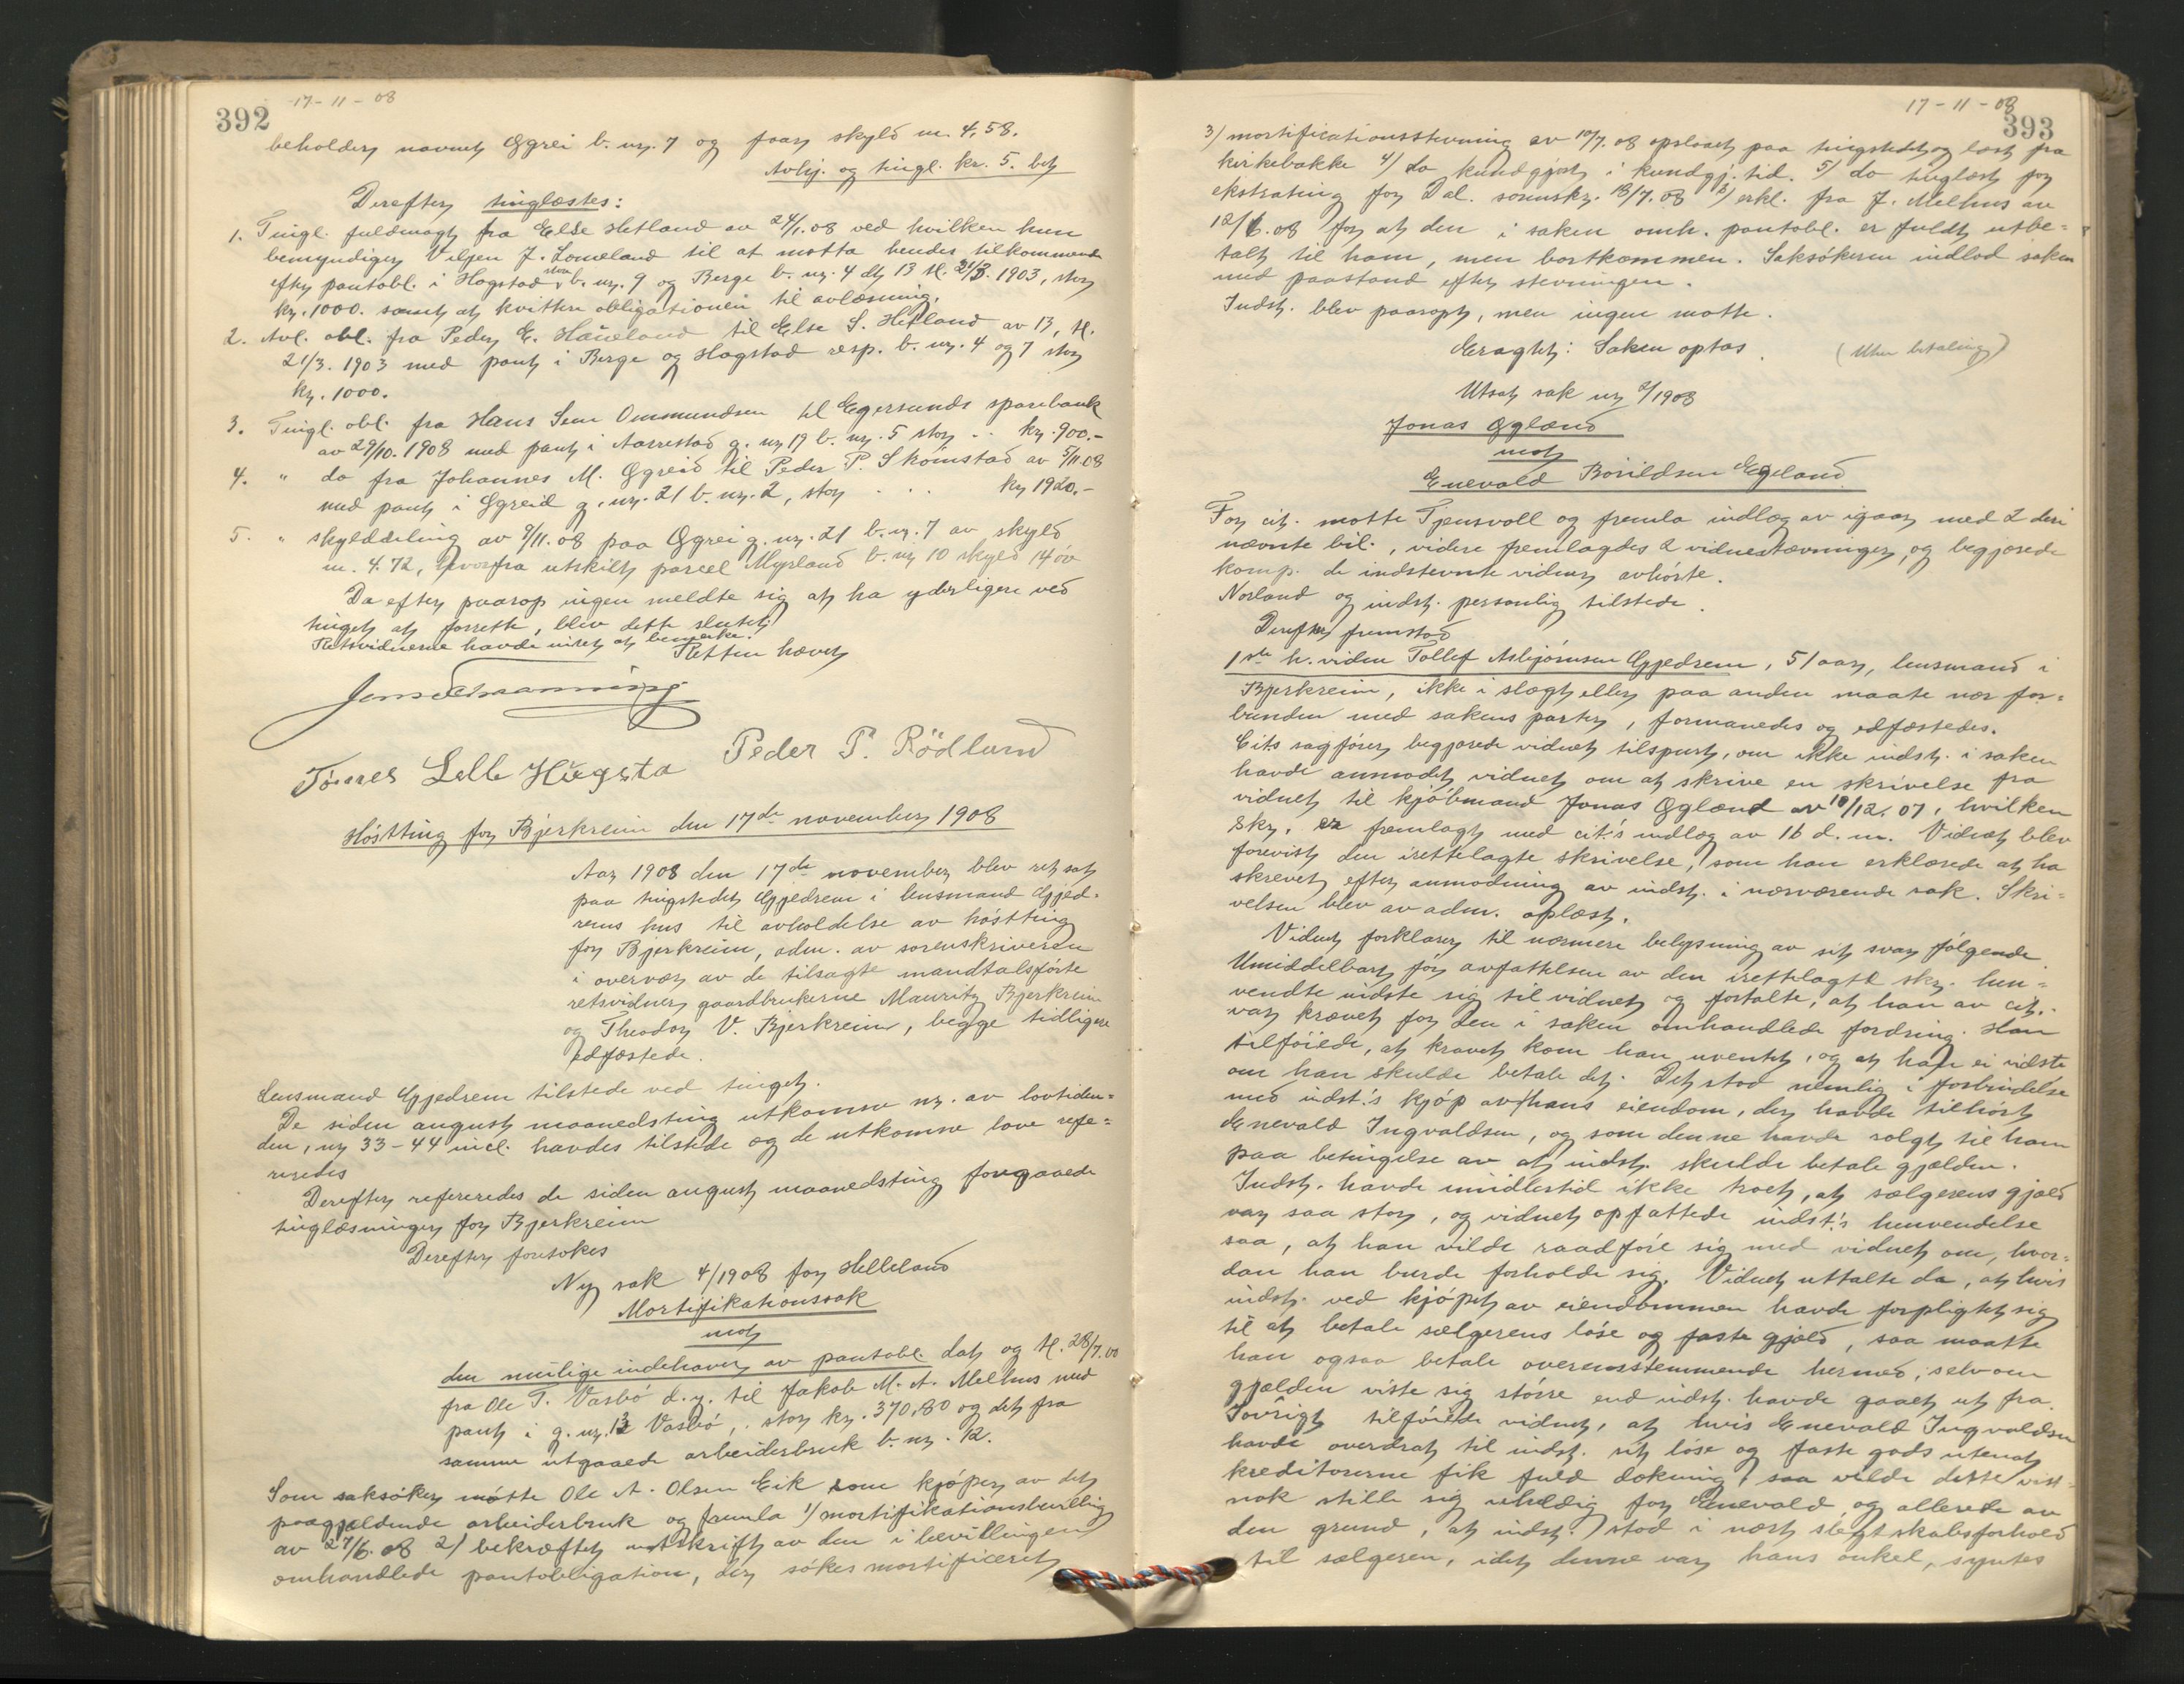 392
17-11-08
beholder navnet Ggrei b. nr. 7 og faar skyld m. 4,58.
Avhj. og tingl. kr. 5. bet
Derefter tinglæstes:
1. Tingl. fuldmagt fra Else Hetland av 24/1.08 ved hvilken hun
bemyndiger Viljen J. Lomeland til at motta hendes tilkommende
efter pantobl. i Hogstad b. nr. 9 og Berge b. nr. 4 dt 13 tl. 21/3. 1903, stor
kr. 1000. samt at kvittere obligationen til avlæsning.
2. Avl. obl. fra Peder E. Haneland til Else S. Hetland av 13, tl.
21/3. 1903 med pant i Berge og Hogstad resp. b. nr. 4 og 7 stor
kr. 1000.
3. Tingl. obl. fra Hans Sem Ommundsen til Egersunds sparebank
av 29/10. 1908 med pant i Aarrestad g. nr 19 b. nr. 5 stor .. kr. 900.-
4. " do fra Johannes M. Ggreid til Peder P. Skomstad av 5/11.08
med pant i Ggreid g. nr. 21 b. nr. 2, stor . . . kr 1920.-
5. " skylddeling av 9/11.08 paa Ggrei g. nr. 21 b. nr. 7 av skyld
m. 4.72, hvorfra utskilt parcel Myrland b. nr 10 skyld 14 øv
Da efter paarop ingen meldte sig at ha yderligere ved
tinget at forrette, blev dette sluttet
Retsvidnerne havde intet at bemerke.
Retten hævet
Jens Schanning
Tønnes Lelle Høgsta Peder P. Rödland
Hóstting for Bjerkreim den 17de november 1908
Aar 1908 den 17de november blev ret sat
paa tingstedet Gjedrem i lensmand Gjed-
rems hus til avholdelse av hóstting
for Bjerkreim, adm. av sorenskriveren
i overvær av de tilsagte mandtalsfórte
retsvidner gaardbrukerne Mauritz Bjerkreim
og Theodor V. Bjerkreim, begge tidligere
edfæstede.
Lensmand Gjedrem tilstede ved tinget.
De siden august maanedsting utkomne nr. av lovtiden-
den, nr 33-44 incl. havdes tilstede og de utkomne love refe-
reredes
Derefter refereredes de siden august maanedsting foregaaede
tinglæsninger for Bjerkreim
Derefter foretokes
Ny sak 4/1908 for Helleland
Mortifikationssak
mot
den mulige indehaver av pantobl. dat og tl. 28/7.00
fra Ole T. Vasbó d.y. til Jakob M. A. Melhus med
pant i g. nr. 13 Vasbó, stor kr. 370,80 og det fra
samme utgaaede arbeiderbruk b. nr. 12.
Som saksóker mótte Ole A. Olsen Eik som kjóper av det
paagjældende arbeiderbruk og fremla 1/ mortifikationsbevilling
av 27/6.08 2/ bekræftet utskrift av den i bevillingen
omhandlede pantobligation, der sókes mortificeret
17-11-08
393
3/ mortificationsstevning av 10/7.08 opslaaet paa tingstedet og læst fra
kirkebakke 4/ do kundgjort i kundgj. tid. 5/ do tinglæst for
ekstrating for Dal. sorenskr. 18/7.08 6/ erkl. fra J. Melhus av
12/6.08 for at den i saken omh. pantobl. er fuldt utbe-
talt til ham, men bortkommen. Saksókeren indlod saken
med paastand efter stevningen.
Indst. blev paaropt, men ingen mótte.
Eragtet: Saken optas. (Uten betaling)
Utsat sak nr 2/1908
Jonas Øglænd
mot
Enevald Bórildsen Egeland
For cit. mótte Tjensvoll og fremla indlæg av igaar med 2 deri
nævnte bil., videre fremlagdes 2 vidnestævninger, og begjærede
komp. de indstevnte vidner avhórte.
Norland og indst. personlig tilstede.
Derefter fremstod
1ste h. vidne Tollef Asbjórnsen Gjedrem, 51 aar, lensmand i
Bjerkreim, ikke i slægt eller paa anden maate nær for-
bunden med sakens parter, formanedes og edfæstedes.
Cits sagfórer begjærede vidnet tilspurt, om ikke indst. i saken
havde anmodet vidnet om at skrive en skrivelse fra
vidnet til kjóbmand Jonas Øglænd av 10/12.07, hvilken
skr. er fremlagt med cit.'s indlæg av 16 d. m. Vidnet blev
forevist den irettelagte skrivelse, som han erklærede at ha
skrevet efter anmodning av indst. i nærværende sak. Skri-
velsen blev av adm. oplæst.
Vidnet forklarer til nærmere belysning av sit svar fólgende
Umiddelbart fór avfattelsen av den irettelagte skr. hen-
vendte indste sig til vidnet og fortalte, at han av cit.
var krævet for den i saken omhandlede fordring. Han
tilfóiede, at kravet kom han uventet, og at han ei vidste
om han skulde betale det. Det stod nemlig i forbindelse
med indst.'s kjóp av hans eiendom, der havde tilhórt
Enevald Ingvaldsen, og som denne havde solgt til ham
paa betingelse av at indst. skulde betale gjælden.
Indst. havde imidlertid ikke troet, at sælgerens gjæld
var saa stor, og vidnet opfattede indst.'s henvendelse
saa, at han vilde raadfóre sig med vidnet om, hvor-
dan han burde forholde sig. Vidnet uttalte da, at hvis
indst. ved kjópet av eiendommen havde forpligtet sig
til at betale sælgerens lóse og faste gjæld, saa maatte
han ogsaa betale overensstemmende hermed, selv om
gjælden viste sig stórre end indst. havde gaaet ut fra.
Ióvrigt tilfóiede vidnet, at hvis Enevald Ingvaldsen
havde overdrat til indst. sit lóse og faste gods uten at
kreditorerne fik fuld dækning, saa vilde dette vist-
nok stille sig uheldig for Enevald og allerede av
den grund, at indst. stod i nært slegtskabsforhold
til sælgeren, idet denne var hans onkel, syntes